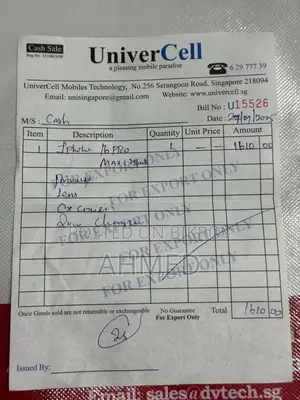 Cash Sale
UniverCell
a pleasing mobile paradise
6 297 777 39
UniverCell Mobiles Technology, No.256 Serangoon Road, Singapore 218094
Email: unisingapore@gmail.com Website: www.univercell.sg
Bill No : U15526
M/S : Cash Date :
Item Description Quantity Unit Price Amount
1 Iphone 16 PRO 1 — — 1610 00
MAX
Lens
FOR EXPORT ONLY
FOR EXPORT ONLY
AHMED
FOR EXPORT ONLY
Once Goods sold are not returnable or exchangeable No Guarantee For Export Only Total 1610 00
Issued By:
Email: sales@dvtech.sg